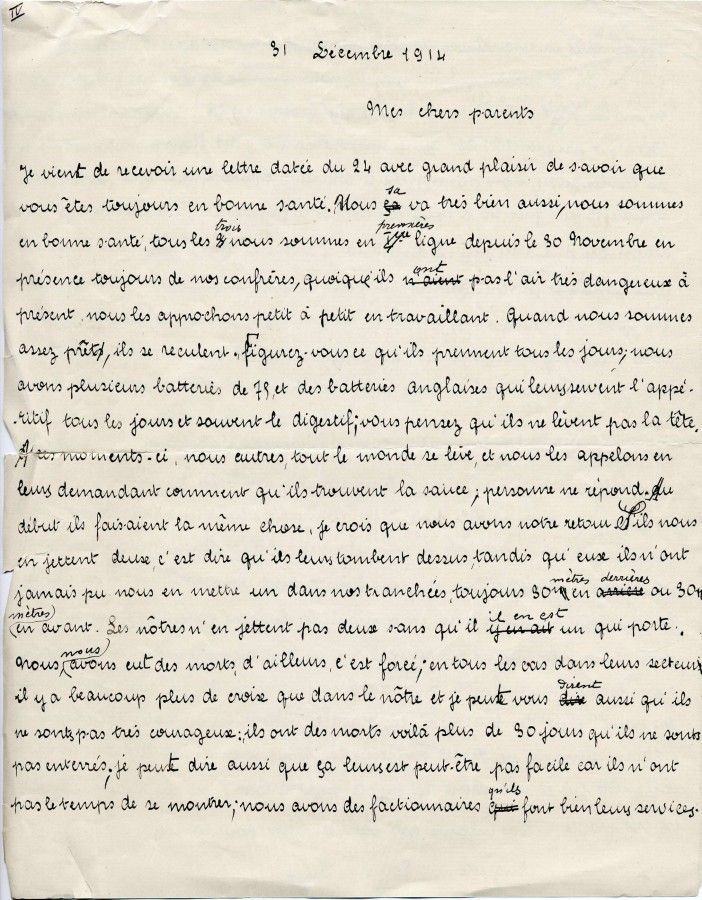 IV
31 Décembre 1914
Mes chers parents
Je vient de recevoir une lettre datée du 24 avec grand plaisir de savoir que
vous êtes toujours en bonne santé. Nous ça sa va très bien aussi, nous sommes
en bonne santé, tous les 3 trois nous sommes en 1ère premières ligne depuis le 30 Novembre en
présence toujours de nos confrères, quoiqu'ils n'aient ont pas l'air très dangereux à
présent nous les approchons petit à petit en travaillant. Quand nous sommes
assez prêts, ils se reculent. Figurez-vous ce qu'ils prennent tous les jours; nous
avons plusieurs batteries de 75, et des batteries anglaises qui leurs servent l'appé-
-ritif tous les jours et souvent le digestif; vous pensez qu'ils ne lèvent pas la tête.
A ces moments-ci, nous autres, tout le monde se lève, et nous les appelons en
leurs demandant comment qu'ils trouvent la sauce; personne ne répond. Au
début ils faisaient la même chose, je crois que nous avons notre retour. S'ils nous
en jettent deux, c'est dire qu'ils leurs tombent dessus, tandis qu'eux ils n'ont
jamais pu nous en mettre un dans nos tranchées, toujours 30 mètres en arrière derrières ou 30
mètres en avant. Les nôtres n'en jettent pas deux sans qu'il y en ait il en est un qui porte.
Nous nous avons eut des morts, d'ailleurs, c'est forcé; en tous les cas dans leurs secteurs
il y a beaucoup plus de croix que dans le nôtre et je peut vous dire disent aussi qu'ils
ne sont pas très courageux; ils ont des morts voilà plus de 30 jours qu'ils ne sont
pas enterrés; je peut dire aussi que ça leurs est peut-être pas facile car ils n'ont
pas le temps de se montrer; nous avons des factionnaires qui qu'ils font bien leurs services.